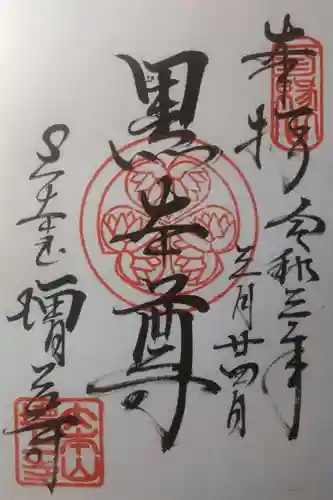 奉拝
令和三年
三月廿四日
黒本尊
大本山
増上寺